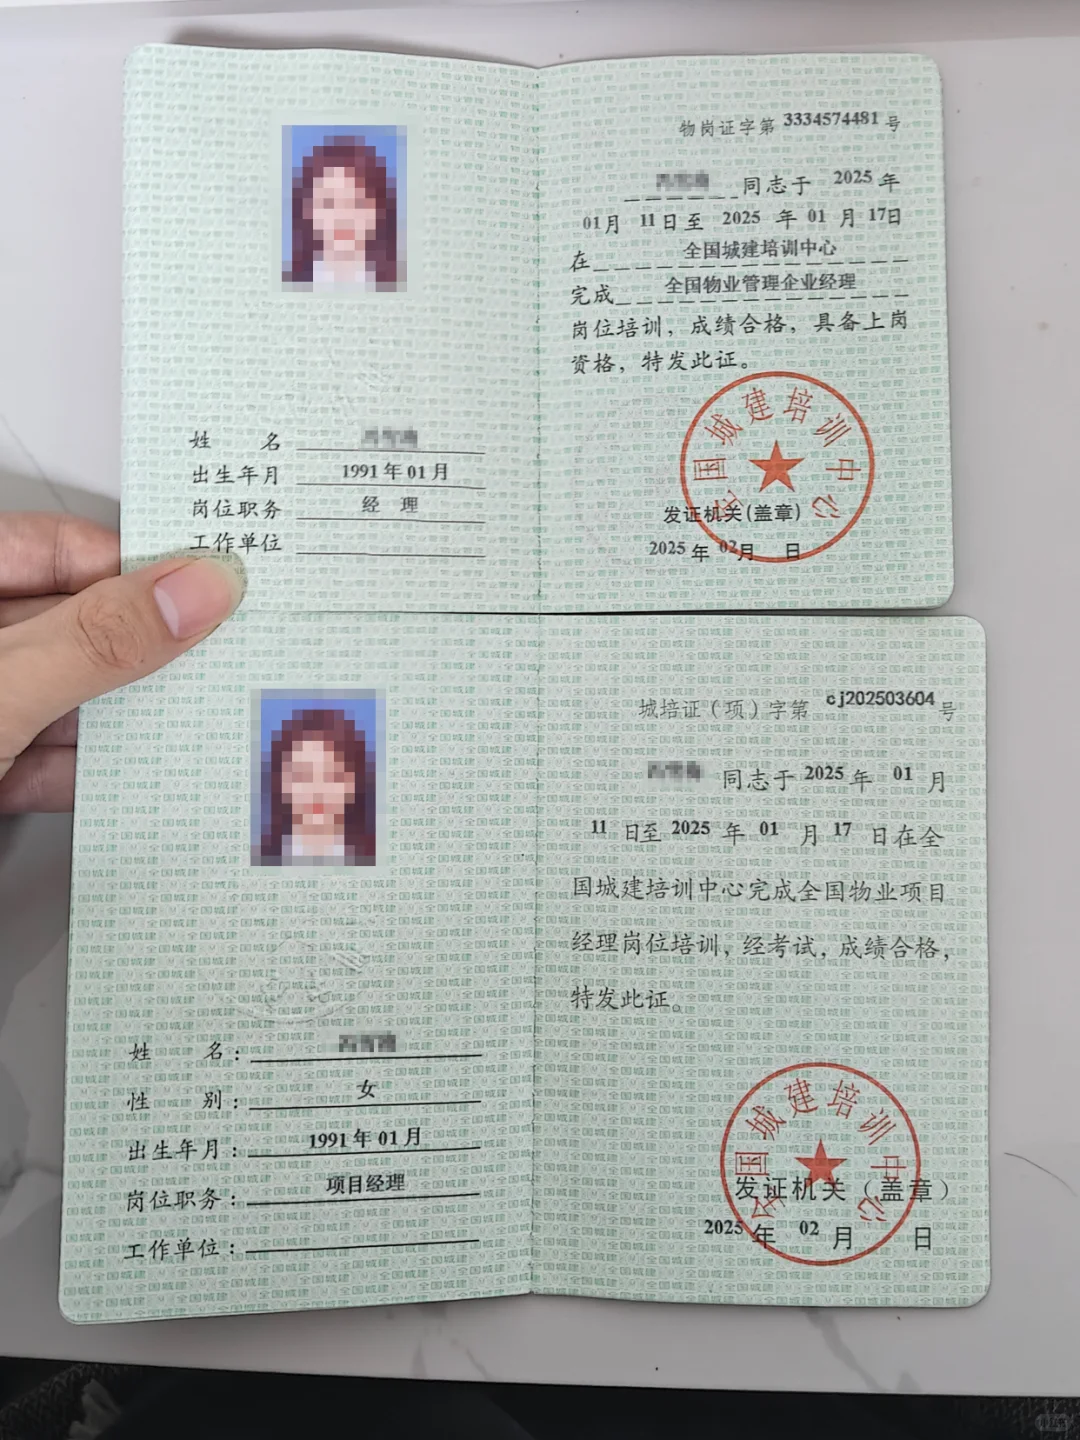 物岗证字第 3334574481 号
同志于 2025 年
01 月 11 日至 2025 年 01 月 17 日
在 全国城建培训中心
完成 全国物业管理企业经理
岗位培训，成绩合格，具备上岗
资格，特发此证。
全国城建培训中心
发证机关(盖章)
2025 年 02 月 日
姓 名
出生年月 1991 年 01 月
岗位职务 经 理
工作单位
城培证（项）字第 cj202503604 号
同志于 2025 年 01 月
11 日至 2025 年 01 月 17 日在全
国城建培训中心完成全国物业项目
经理岗位培训，经考试，成绩合格，
特发此证。
全国城建培训中心
发证机关（盖章）
2025 年 02 月 日
姓 名：
性 别： 女
出生年月： 1991 年 01 月
岗位职务： 项目经理
工作单位：